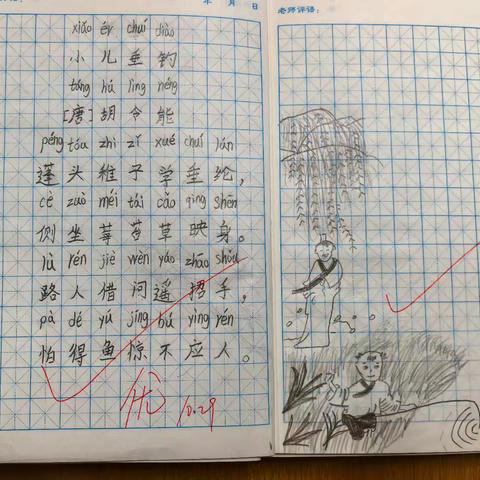 年 月 日
老师评语：
xiǎo ér chuí diào
小儿垂钓
táng hú lìng néng
[唐]胡令能
péng tóu zhì zǐ xué chuí lún
蓬头稚子学垂纶，
cè zuò méi tái cǎo yìng shēn
侧坐莓苔草映身。
lù rén jiè wèn yáo zhāo shǒu
路人借问遥招手，
pà dé yú jīng bú yìng rén
怕得鱼惊不应人。
优 10.29